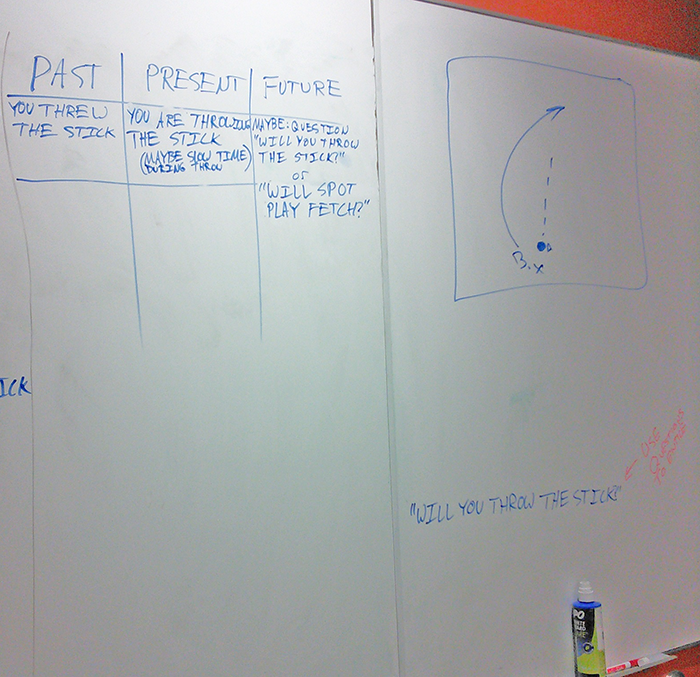 PAST
PRESENT
FUTURE
YOU THREW
THE STICK
YOU ARE THROWING
THE STICK
(MAYBE SLOW TIME)
DURING THROW
MAYBE: QUESTION
"WILL YOU THROW
THE STICK?"
or
"WILL SPOT
PLAY FETCH?"
ICK
B.x
"WILL YOU THROW THE STICK?"
USE
QUESTIONS
TO